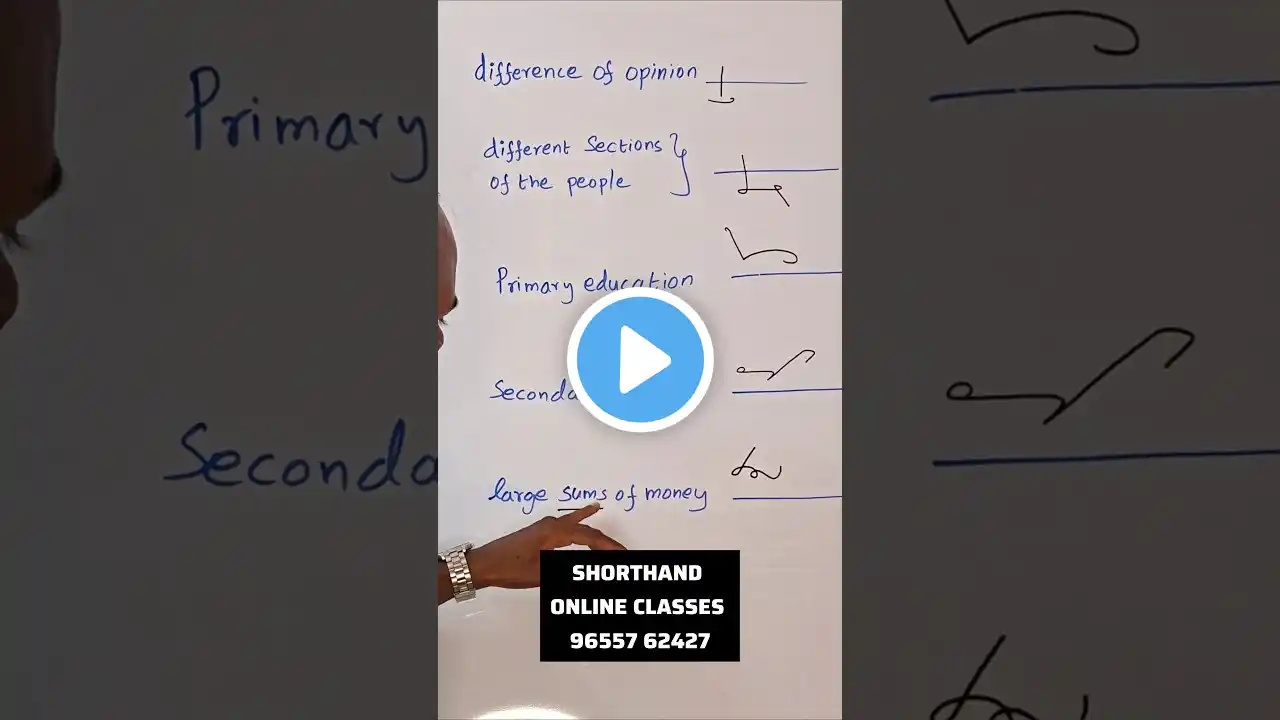 difference of opinion
different Sections
of the people
Primary education
Seconda
large sums of money
SHORTHAND
ONLINE CLASSES
96557 62427
Primary
Seconda